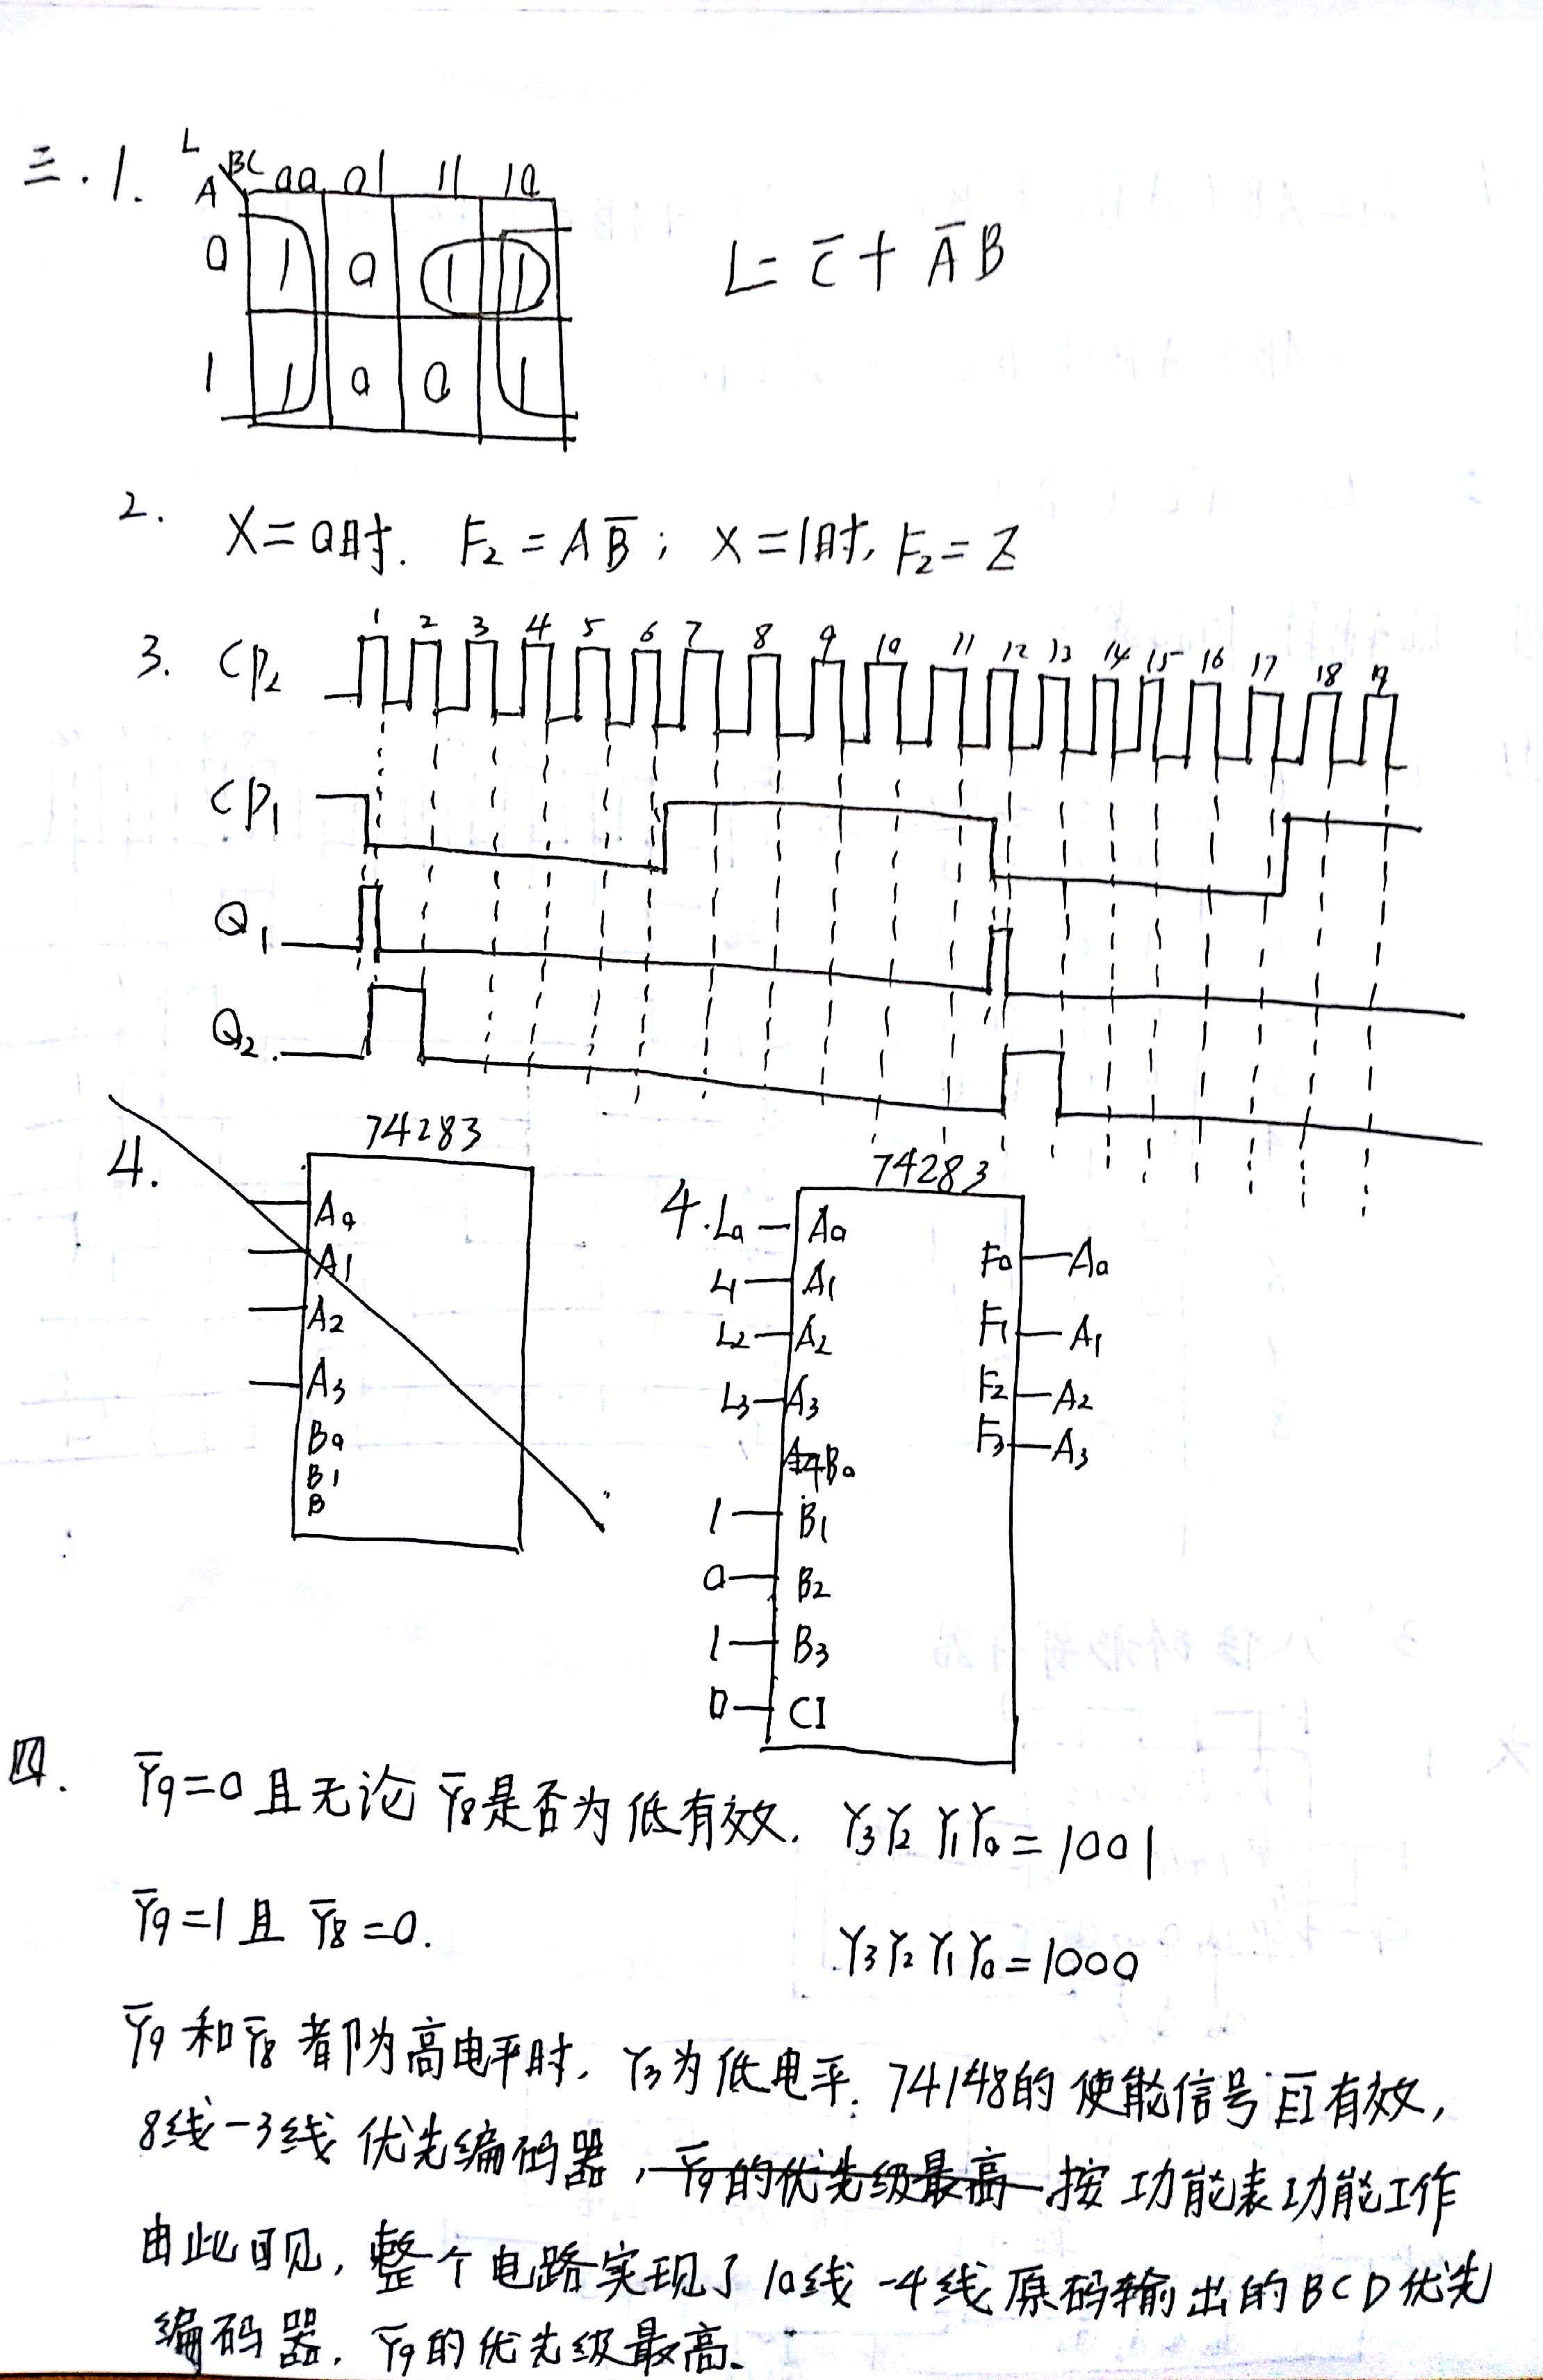 三.1. L
A BC 00 01 11 10
0 1 0 1 1
1 1 0 0 1
L = C̅ + A̅B
2. X=0时. F₂=AB̅; X=1时, F₂=Z
3. CP₂ 1 2 3 4 5 6 7 8 9 10 11 12 13 14 15 16 17 18 19
CP₁
Q₁
Q₂
4. 74283
A₀
A₁
A₂
A₃
B₀
B₁
B
4. 74283
L₀ A₀ F₀ A₀
L₁ A₁ F₁ A₁
L₂ A₂ F₂ A₂
L₃ A₃ F₃ A₃
B₀
1 B₁
0 B₂
1 B₃
0 CI
四. Y̅₉=0且无论Y̅₈是否为低有效. Y₃Y₂Y₁Y₀=1001
Y̅₉=1且Y̅₈=0. Y₃Y₂Y₁Y₀=1000
Y̅₉和Y̅₈都为高电平时, Y₃为低电平. 74148的使能信号且有效,
8线-3线优先编码器, Y̅₉的优先级最高 按功能表功能工作
由此可见, 整个电路实现了10线-4线原码输出的BCD优先
编码器, Y̅₉的优先级最高.